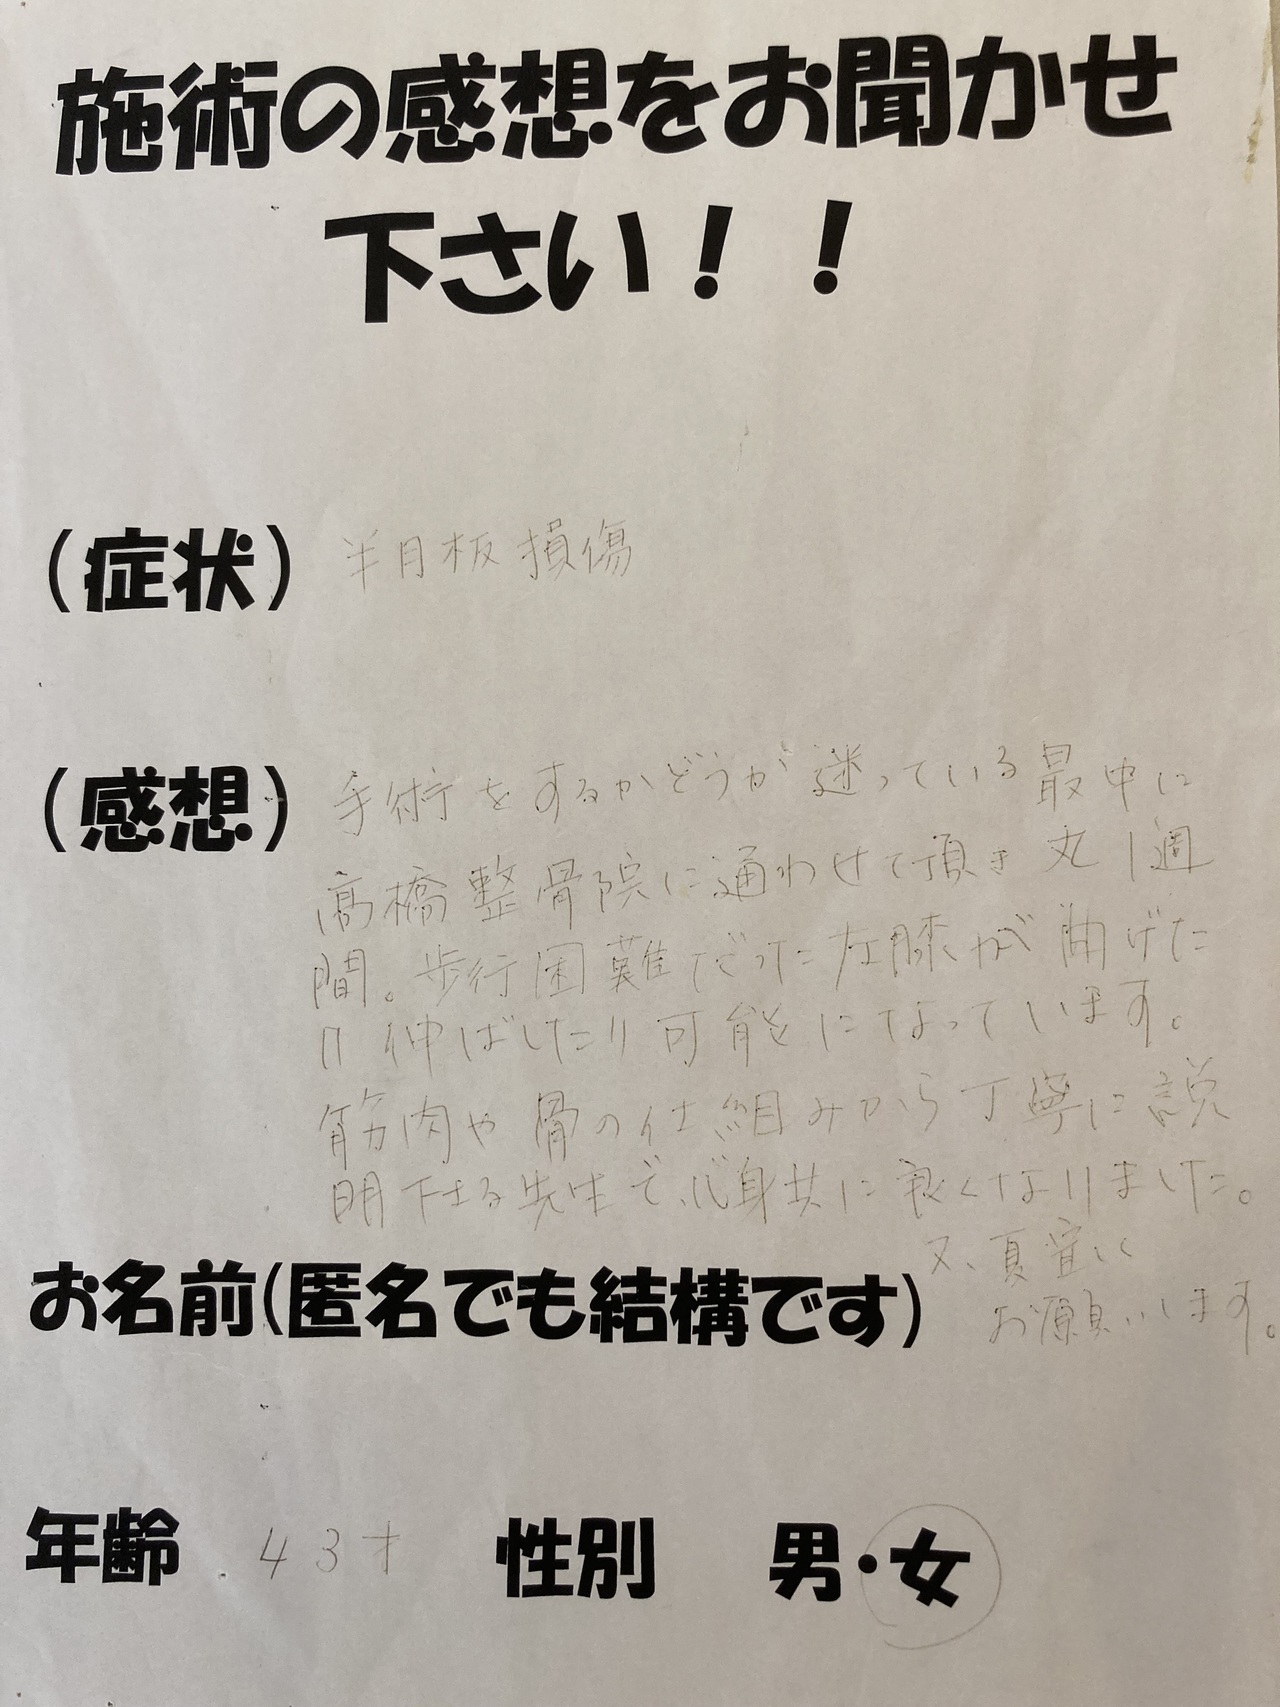 施術の感想をお聞かせ
下さい！！
(症状) 半月板損傷
(感想) 手術をするかどうか迷っている最中に
髙橋整骨院に通わせて頂き 丸1週
間。歩行困難だった左膝が曲げた
り伸ばしたり可能になっています。
筋肉や骨の仕組みから丁寧に説
明下さる先生で、心身共に良くなりました。
又、
お名前(匿名でも結構です) お願いします。
年齢 43才 性別 男・女